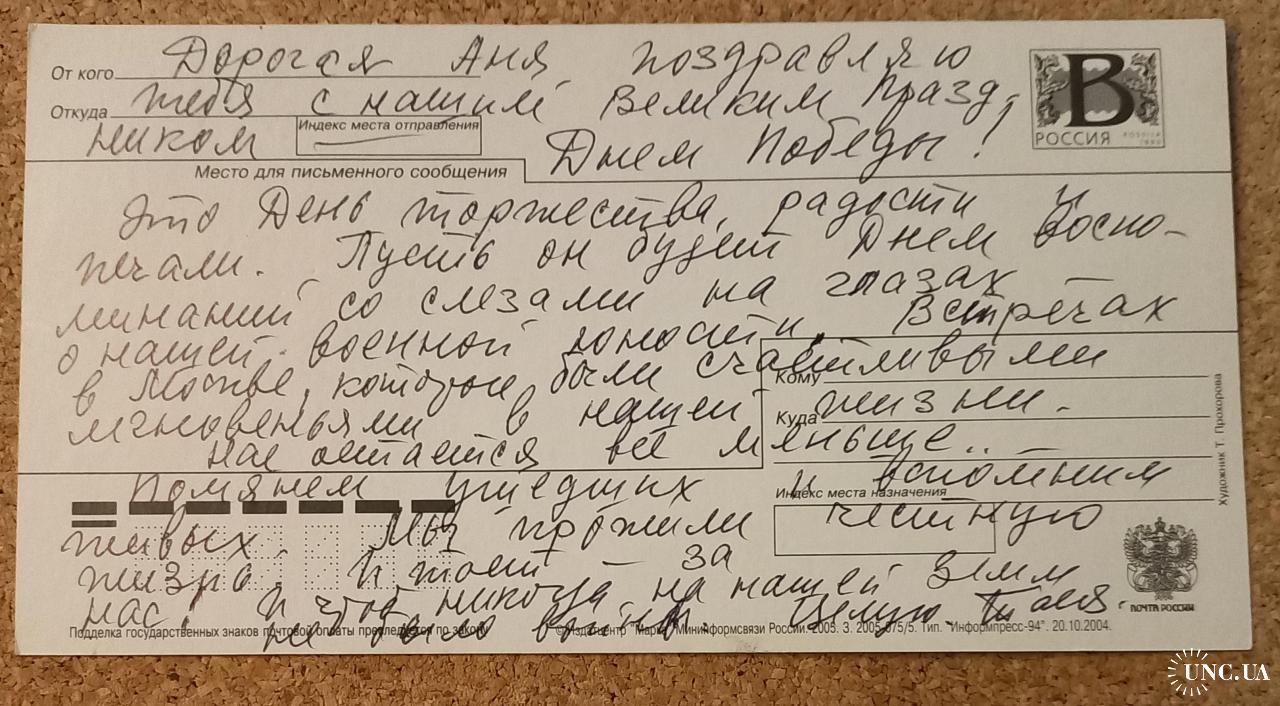 От кого Дорогая Аня поздравляю
Откуда тебя с нашим Великим Празд-
ником
Индекс места отправления
Днем Победы!
В
РОССИЯ
ROSSIJA
Место для письменного сообщения
Это День торжества, радости и
печали. Пусть он будет Днем воспо-
минаний со слезами на глазах
о нашей военной юности, Встречах
в Москве, которые были счастливыми
Кому
мгновеньями в нашей жизни.
Куда
нас остается всё меньше..
Помянем ушедших и вспомним
Индекс места назначения
живых. Мы прожили честную
жизнь. И тост за
нас! И чтоб никогда на нашей Земли
не было войны. Целую.
Художник Т. Прохорова
ПОЧТА РОССИИ
Подделка государственных знаков почтовой оплаты преследуется по закону
© Издатцентр "Марка" Мининформсвязи России. 2005. З. 2005-075/5. Тип. "Информпресс-94". 20.10.2004.
UNC.UA